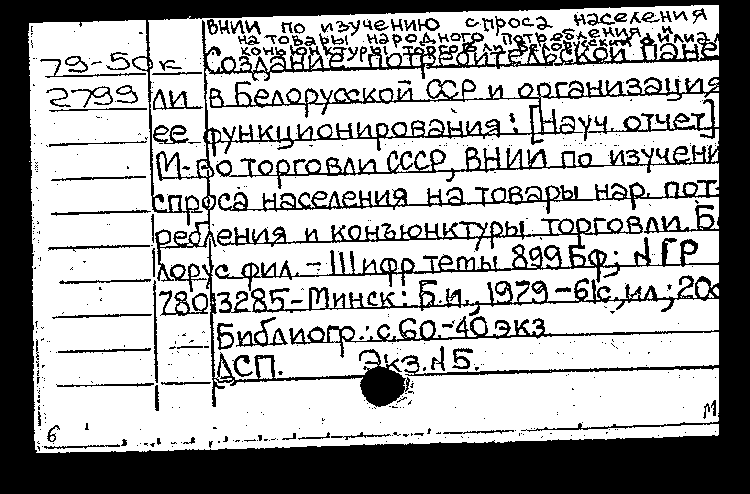 ВНИИ по изучению спроса населения
на товары народного потребления и
конъюнктуры торговли. Белорусский филиал
79-50к Создание потребительской пане
2799 ли в Белорусской ССР и организация
ее функционирования: [Науч. отчет]
М-во торговли СССР, ВНИИ по изучени
спроса населения на товары нар. пот-
ребления и конъюнктуры торговли. Бе
лорус фил. - Шифр темы 899Бф; N ГР
78013285.-Минск: Б.и., 1979 - 61с, ил.; 20с
Библиогр.: с.60.-40 экз
ДСП. Экз. N5.
М
6